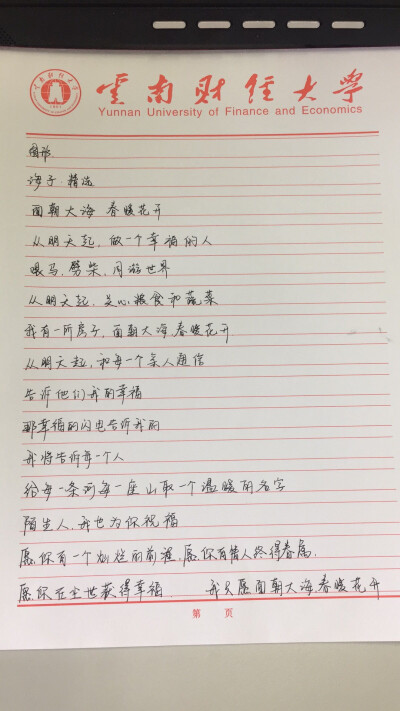 雲南财经大学
Yunnan University of Finance and Economics
海子 精选
面朝大海 春暖花开
从明天起,做一个幸福的人
喂马,劈柴,周游世界
从明天起,关心粮食和蔬菜
我有一所房子,面朝大海,春暖花开
从明天起,和每一个亲人通信
告诉他们我的幸福
那幸福的闪电告诉我的
我将告诉每个人
给每一条河每一座山取一个温暖的名字
陌生人,我也为你祝福
愿你有一个灿烂的前程,愿你有情人终得眷属,
愿你在尘世获得幸福 我只愿面朝大海春暖花开
第 页